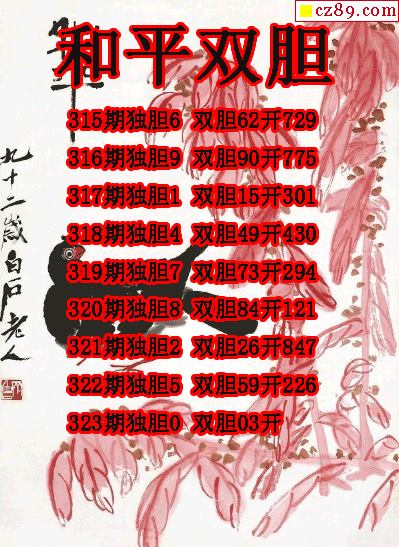 cz89.com
和平双胆
315期独胆6 双胆62开729
316期独胆9 双胆90开775
317期独胆1 双胆15开301
318期独胆4 双胆49开430
319期独胆7 双胆73开294
320期独胆8 双胆84开121
321期独胆2 双胆26开847
322期独胆5 双胆59开226
323期独胆0 双胆03开
九十二歲白石老人